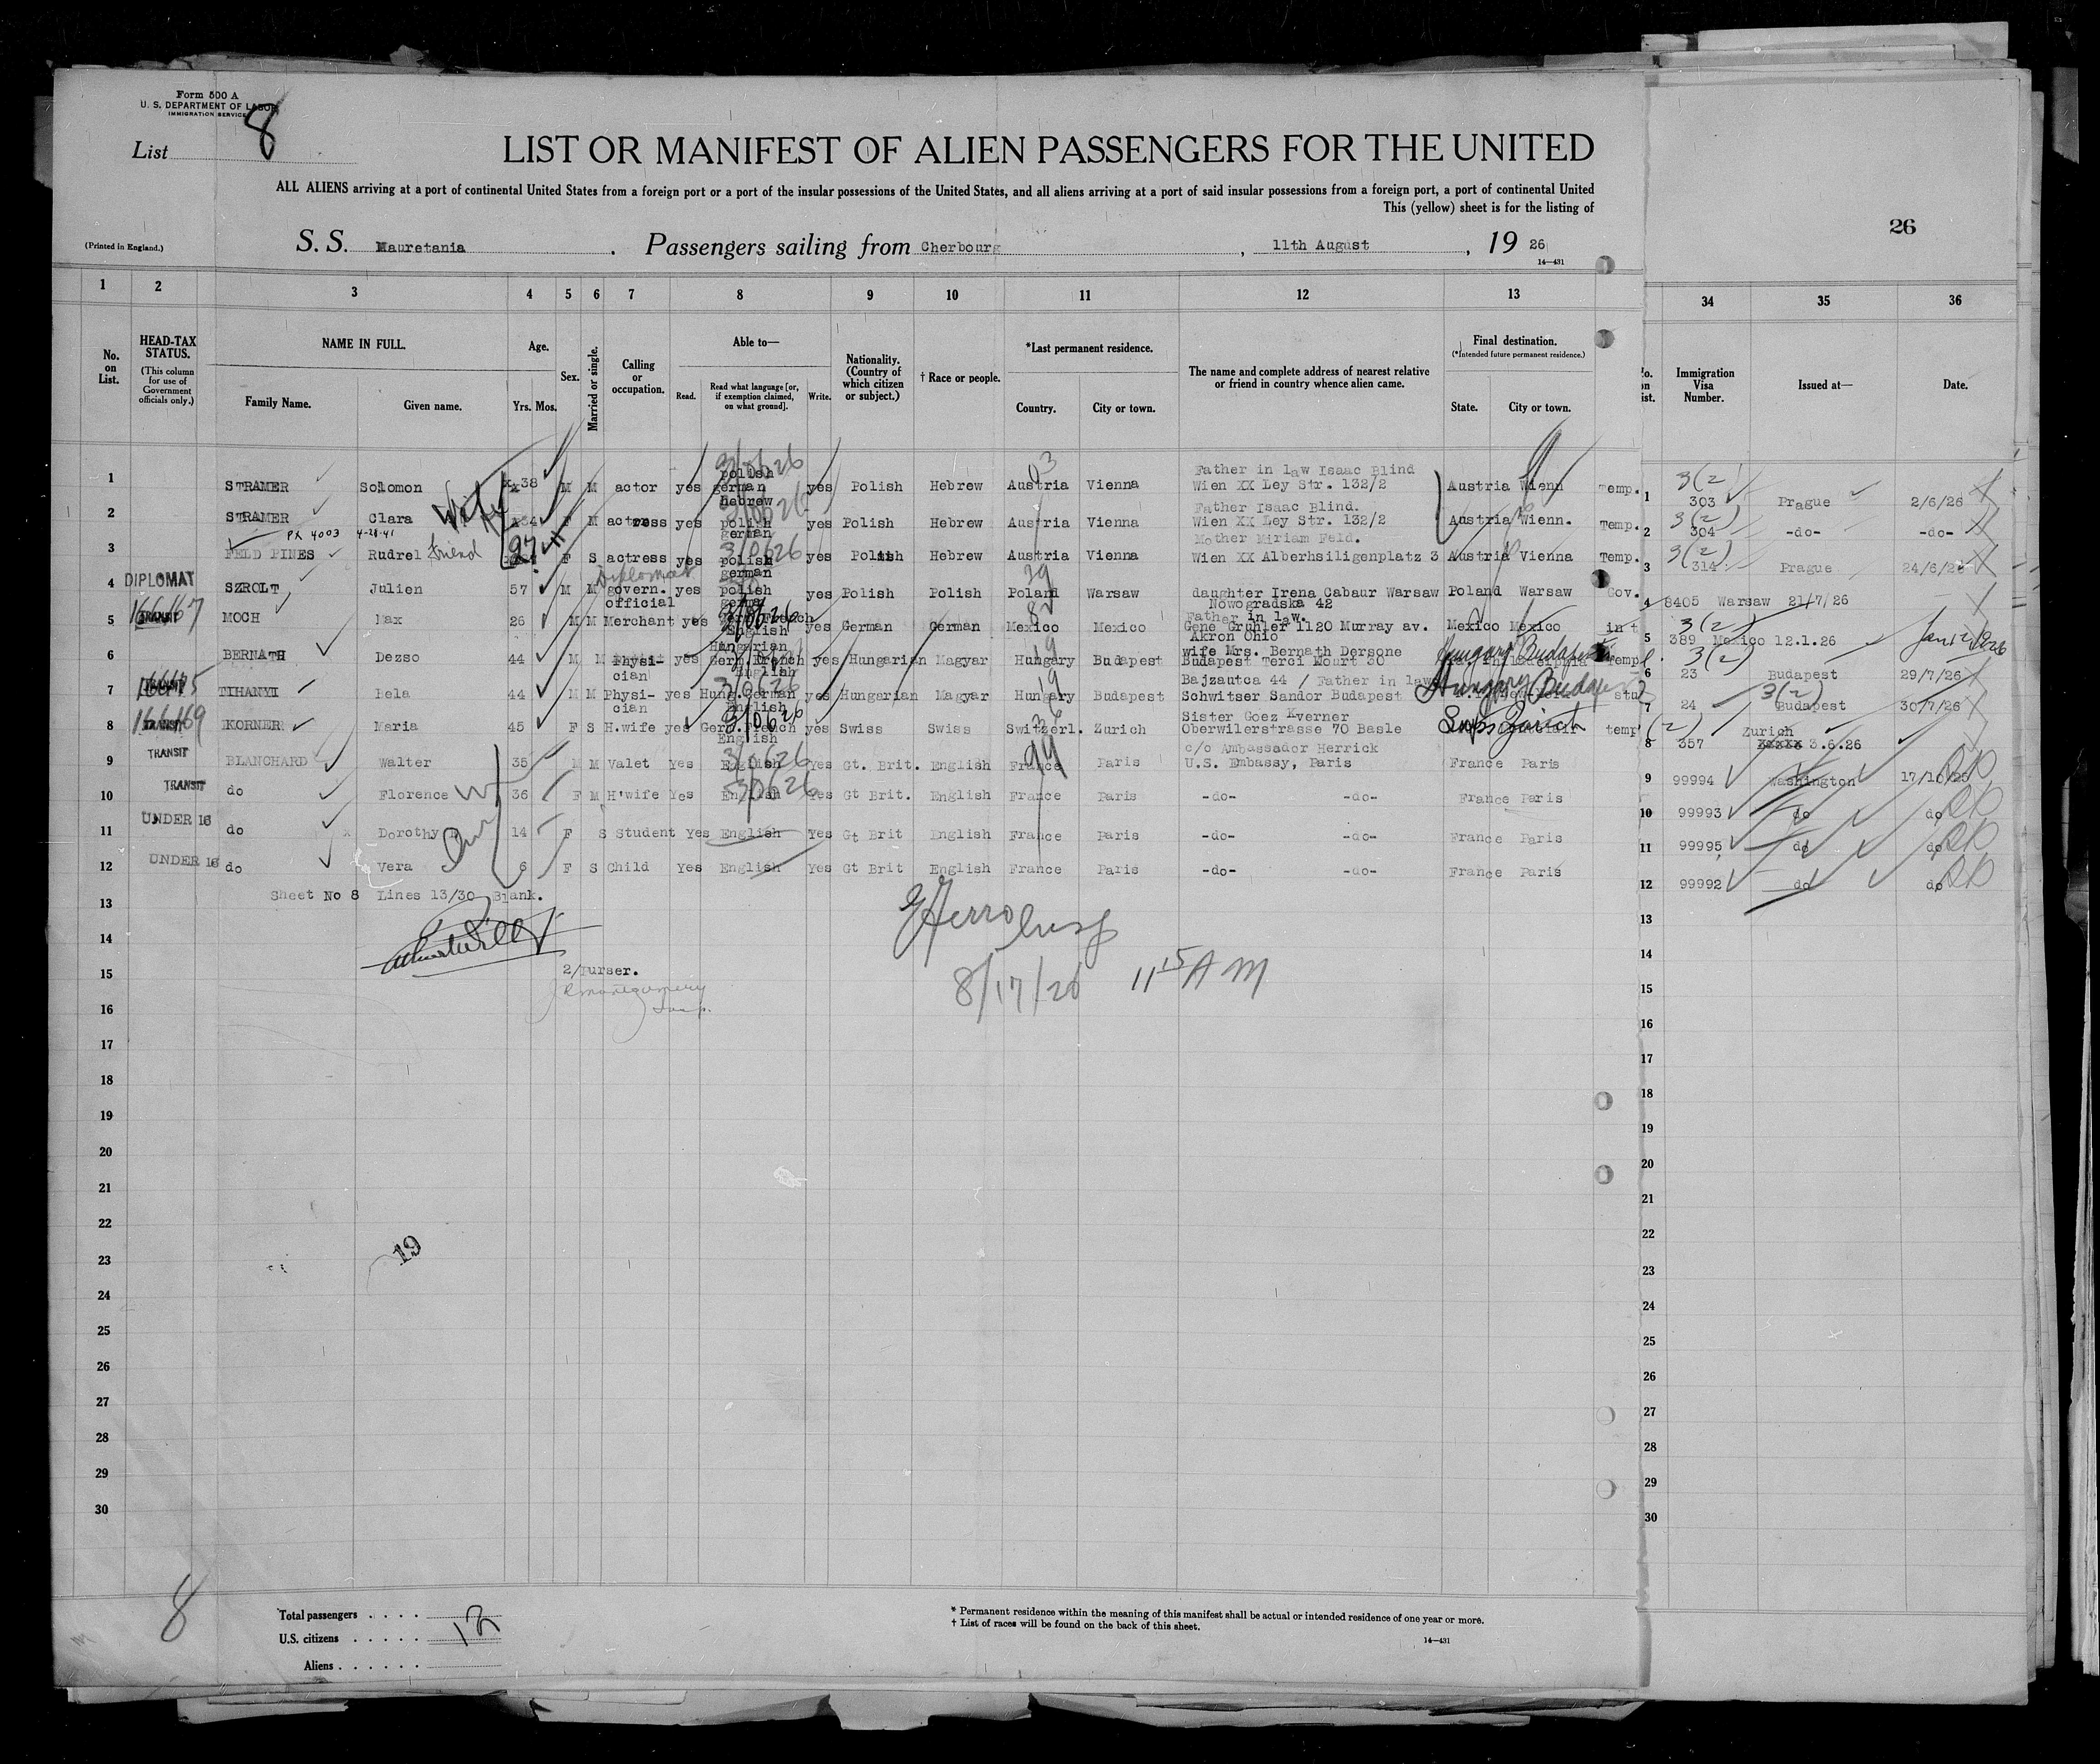 Form 500 A
U. S. DEPARTMENT OF LABOR
IMMIGRATION SERVICE
List 8
LIST OR MANIFEST OF ALIEN PASSENGERS FOR THE UNITED
ALL ALIENS arriving at a port of continental United States from a foreign port or a port of the insular possessions of the United States, and all aliens arriving at a port of said insular possessions from a foreign port, a port of continental United
This (yellow) sheet is for the listing of
26
(Printed in England.)
S. S. Mauretania . Passengers sailing from Cherbourg , 11th August , 19 26
14—431
1 2 3 4 5 6 7 8 9 10 11 12 13 34 35 36
No. on List.
HEAD-TAX STATUS.
(This column for use of Government officials only.)
NAME IN FULL.
Family Name. Given name.
Age.
Yrs. Mos.
Sex.
Married or single.
Calling or occupation.
Able to—
Read. Read what language [or, if exemption claimed, on what ground]. Write.
Nationality. (Country of which citizen or subject.)
† Race or people.
*Last permanent residence.
Country. City or town.
The name and complete address of nearest relative or friend in country whence alien came.
Final destination.
(*Intended future permanent residence.)
State. City or town.
Immigration Visa Number.
Issued at—
Date.
1 STRAMER Solomon 38 M M actor yes polish german hebrew yes Polish Hebrew Austria Vienna Father in law Isaac Blind Wien XX Ley Str. 132/2 Austria Wienn Temp. 1 3(2) 303 Prague 2/6/26
2 STRAMER Clara Wife 34 F M actress yes polish german yes Polish Hebrew Austria Vienna Father Isaac Blind. Wien XX Ley Str. 132/2 Austria Wienn. Temp. 2 3(2) 304 -do- -do-
PX 4003 4-28-41
3 FELD PINES Rudrel friend 27 F S actress yes polish german yes Polish Hebrew Austria Vienna Mother Miriam Feld. Wien XX Alberhsiligenplatz 3 Austria Vienna Temp. 3 3(2) 314 Prague 24/6/26
4 DIPLOMAT SZROLT Julien 57 M M Diplomat govern. official yes polish yes Polish Polish Poland Warsaw daughter Irena Cabaur Warsaw Nowogradska 42 Poland Warsaw Gov. 4 8405 Warsaw 21/7/26
5 TRANSIT MOCH Max 26 M M Merchant yes French English yes German German Mexico Mexico Father in law. Gene Gruhler 1120 Murray av. Akron Ohio Mexico Mexico 5 3(2) 389 Mexico 12.1.26 Jan 12 1926
6 BERNATH Dezso 44 M M Physician yes Hungarian Germ. French English yes Hungarian Magyar Hungary Budapest wife Mrs. Bernath Dersone Budapest Terci Mourt 30 Hungary Budapest Temp 6 3(2) 23 Budapest 29/7/26
7 TRANSIT TIHANYI Bela 44 M M Physician yes Hung. German English yes Hungarian Magyar Hungary Budapest Bajzautca 44 / Father in law Schwitser Sandor Budapest Hungary Budapest stu 7 24 3(2) Budapest 30/7/26
8 TRANSIT KORNER Maria 45 F S H.wife yes Germ. French English yes Swiss Swiss Switzerl. Zurich Sister Goez Kverner Oberwilerstrasse 70 Basle Zurich temp 8 (2) 357 Zurich 3.6.26
9 TRANSIT BLANCHARD Walter 35 M M Valet Yes English Yes Gt. Brit. English France Paris c/o Ambassador Herrick U.S. Embassy, Paris France Paris 9 99994 Washington 17/10/25
10 TRANSIT do Florence 36 F M H'wife Yes English Yes Gt Brit. English France Paris -do- -do- France Paris 10 99993 do do
11 UNDER 16 do Dorothy 14 F S Student Yes English Yes Gt Brit English France Paris -do- -do- France Paris 11 99995 do do
12 UNDER 16 do Vera 6 F S Child Yes English Yes Gt Brit English France Paris -do- -do- France Paris 12 99992 do do
Sheet No 8 Lines 13/30 Blank.
13 13
14 14
15 2/Purser. 15
8/17/26 11 15 AM
16 16
17 17
18 18
19 19
20 20
21 21
22 22
23 19 23
24 24
25 25
26 26
27 27
28 28
29 29
30 30
8
Total passengers . . . . 12
U.S. citizens . . . . .
Aliens . . . . . .
* Permanent residence within the meaning of this manifest shall be actual or intended residence of one year or more.
† List of races will be found on the back of this sheet.
14—431